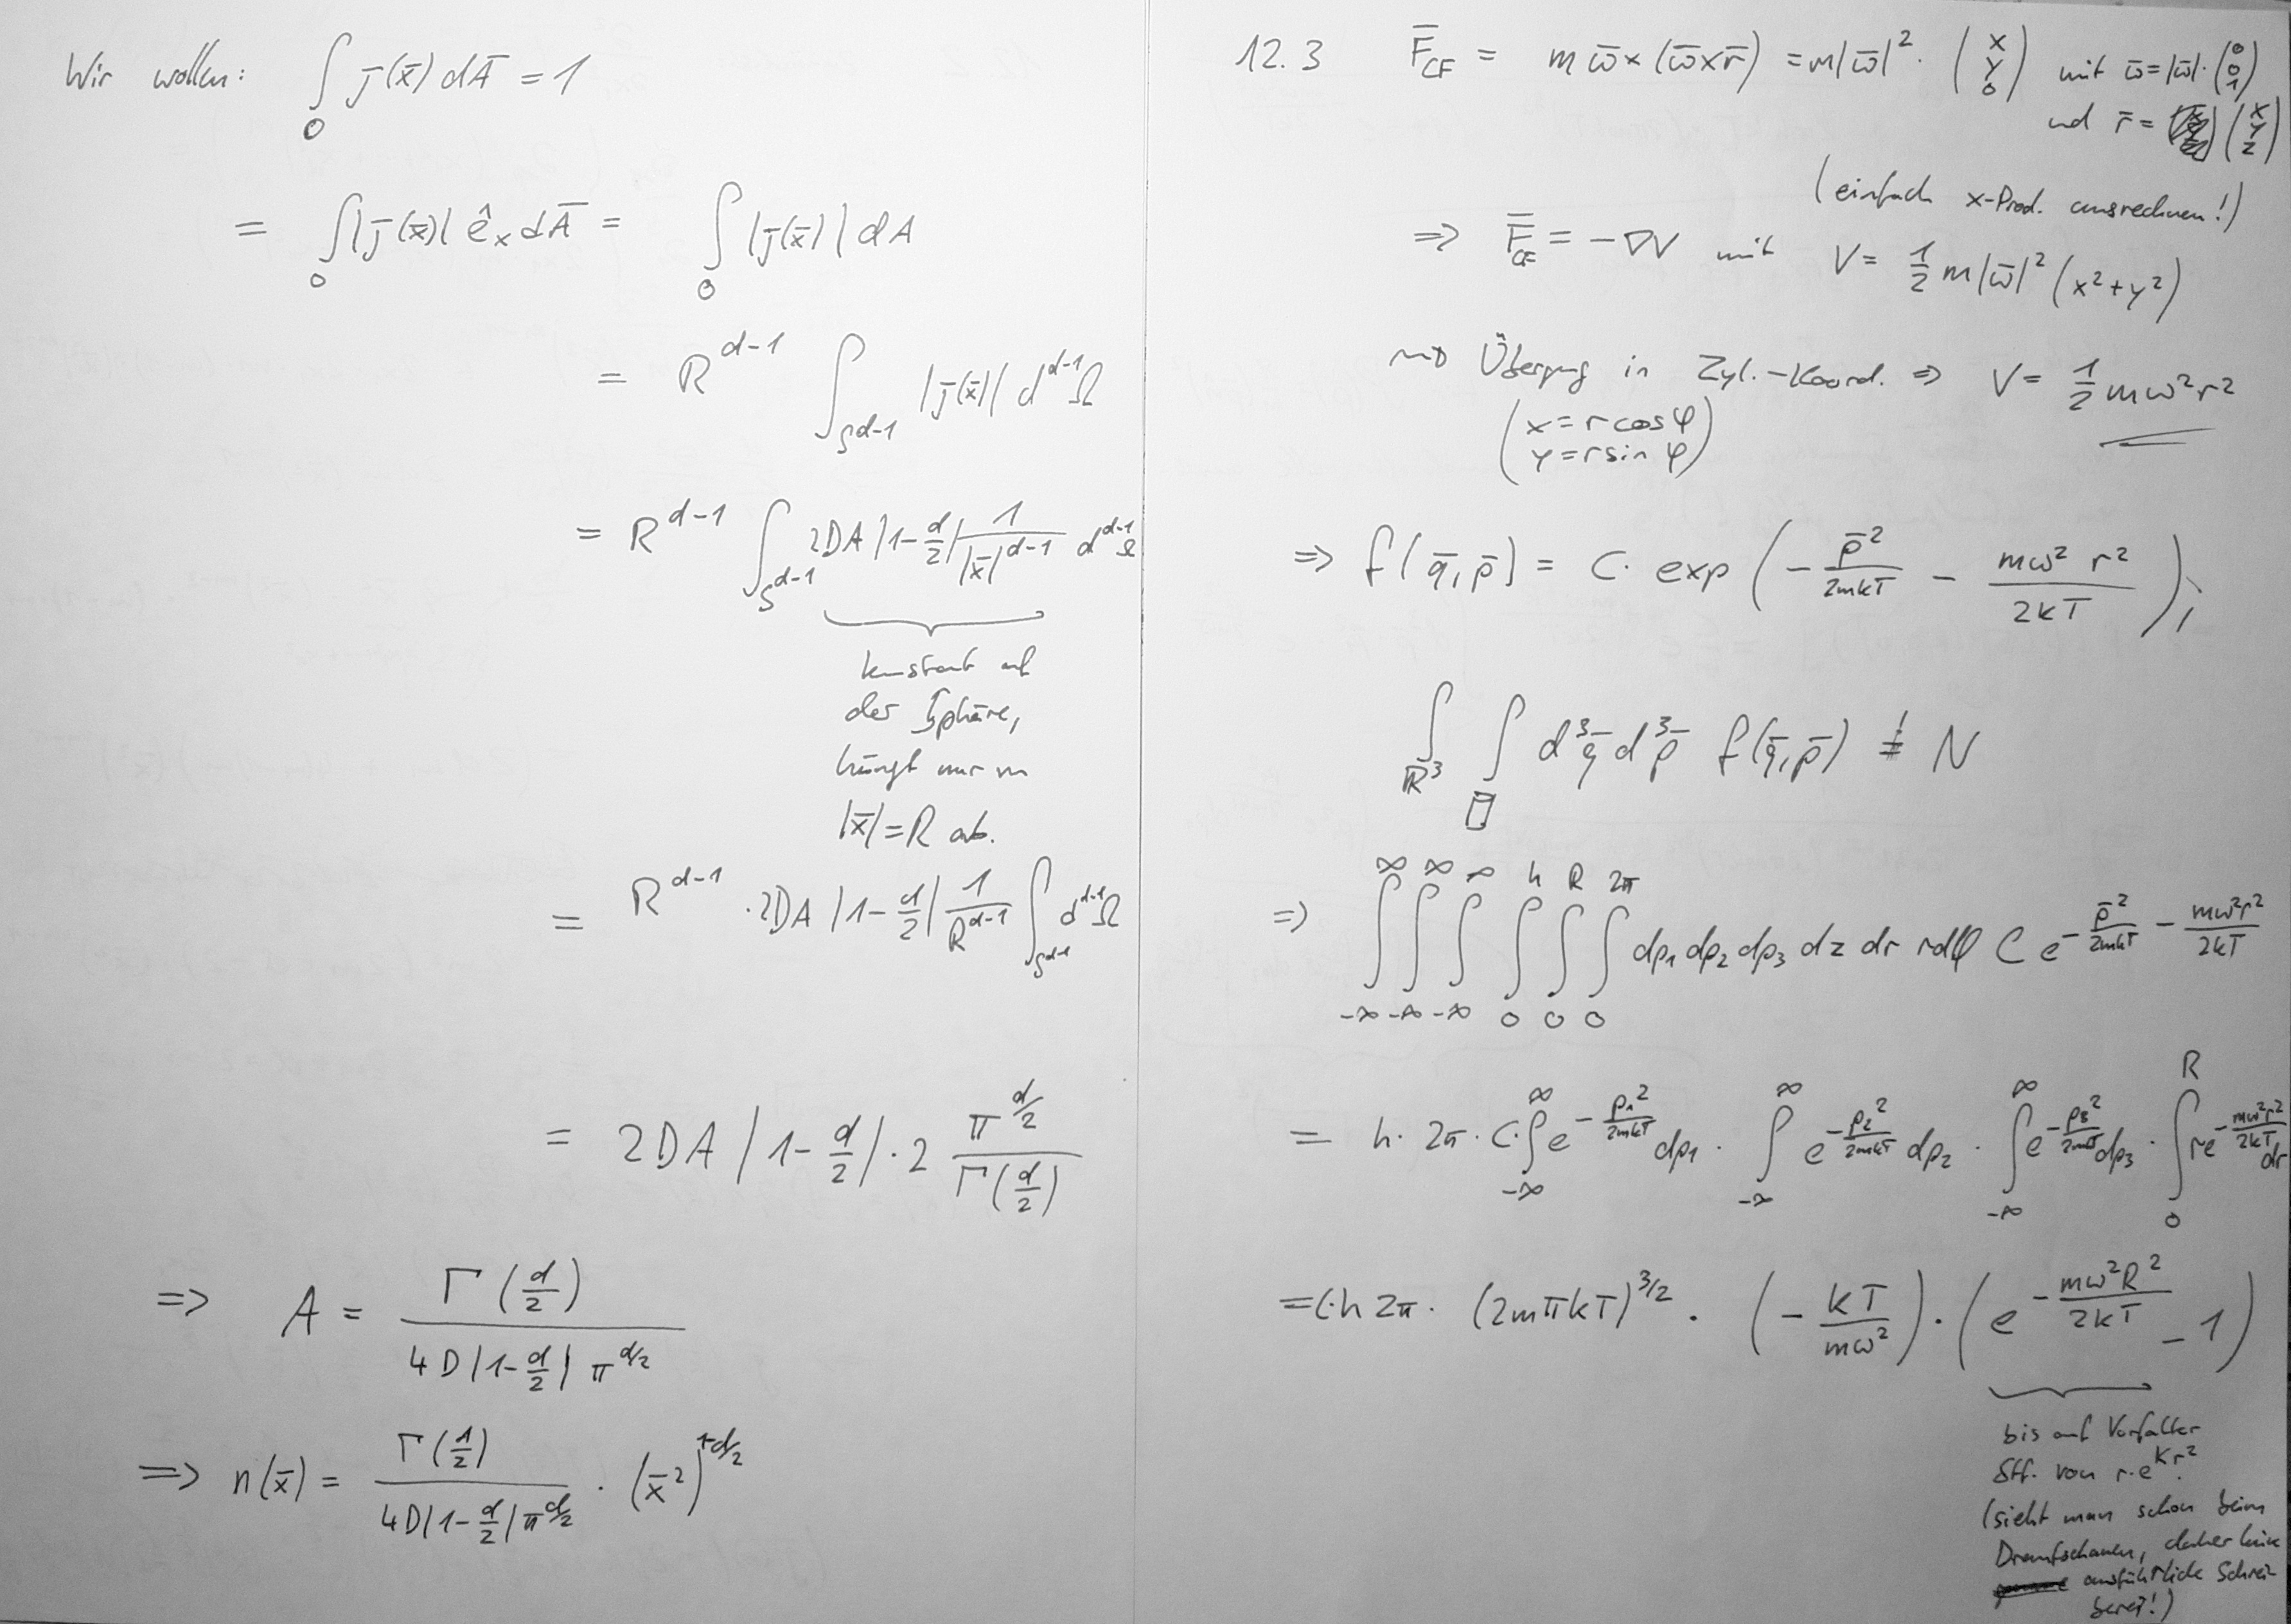 Wir wollen: ∫_O j̄(x̄) dĀ = 1
= ∫_O |j̄(x̄)| ê_x dĀ = ∫_O |j̄(x̄)| dA
= R^{d-1} ∫_{S^{d-1}} |j̄(x̄)| d^{d-1}Ω
= R^{d-1} ∫_{S^{d-1}} 2DA |1-d/2| 1/|x̄|^{d-1} d^{d-1}Ω
konstant auf
der Sphäre,
hängt nur von
|x̄| = R ab.
= R^{d-1} · 2DA |1-d/2| 1/R^{d-1} ∫_{S^{d-1}} d^{d-1}Ω
= 2DA |1-d/2| · 2 π^{d/2}/Γ(d/2)
=> A = Γ(d/2) / (4D|1-d/2| π^{d/2})
=> n(x̄) = Γ(1/2) / (4D|1-d/2| π^{d/2}) · (x̄²)^{1-d/2}
12.3 F̄_CF = m ω̄×(ω̄×r̄) = m|ω̄|² · (x y 0) mit ω̄ = |ω̄|·(0 0 1)
und r̄ = (x y z)
(einfach x-Prod. ausrechnen!)
=> F̄_CF = -∇V mit V = 1/2 m|ω̄|² (x²+y²)
⇝ Übergang in Zyl.-Koord. => V = 1/2 mω²r²
(x = r cos φ
y = r sin φ)
=> f(q̄,p̄) = C· exp(- p̄²/2mkT - mω² r²/2kT);
∫_{ℝ³} ∫ d³q̄ d³p̄ f(q̄,p̄) =! N
=> ∫_{-∞}^{∞} ∫_{-∞}^{∞} ∫_{-∞}^{∞} ∫_0^h ∫_0^R ∫_0^{2π} dp₁ dp₂ dp₃ dz dr rdφ C e^{- p̄²/2mkT - mω²r²/2kT}
= h· 2π· C· ∫_{-∞}^{∞} e^{- p₁²/2mkT} dp₁ · ∫_{-∞}^{∞} e^{- p₂²/2mkT} dp₂ · ∫_{-∞}^{∞} e^{- p₃²/2mkT} dp₃ · ∫_0^R r e^{- mω²r²/2kT} dr
= C·h 2π· (2mπkT)^{3/2} · (- kT/mω²) · (e^{- mω²R²/2kT} - 1)
bis auf Vorfaktor
Stf. von r·e^{Kr²}.
(sieht man schon beim
Draufschauen, daher keine
ausführliche Schrei-
berei!)